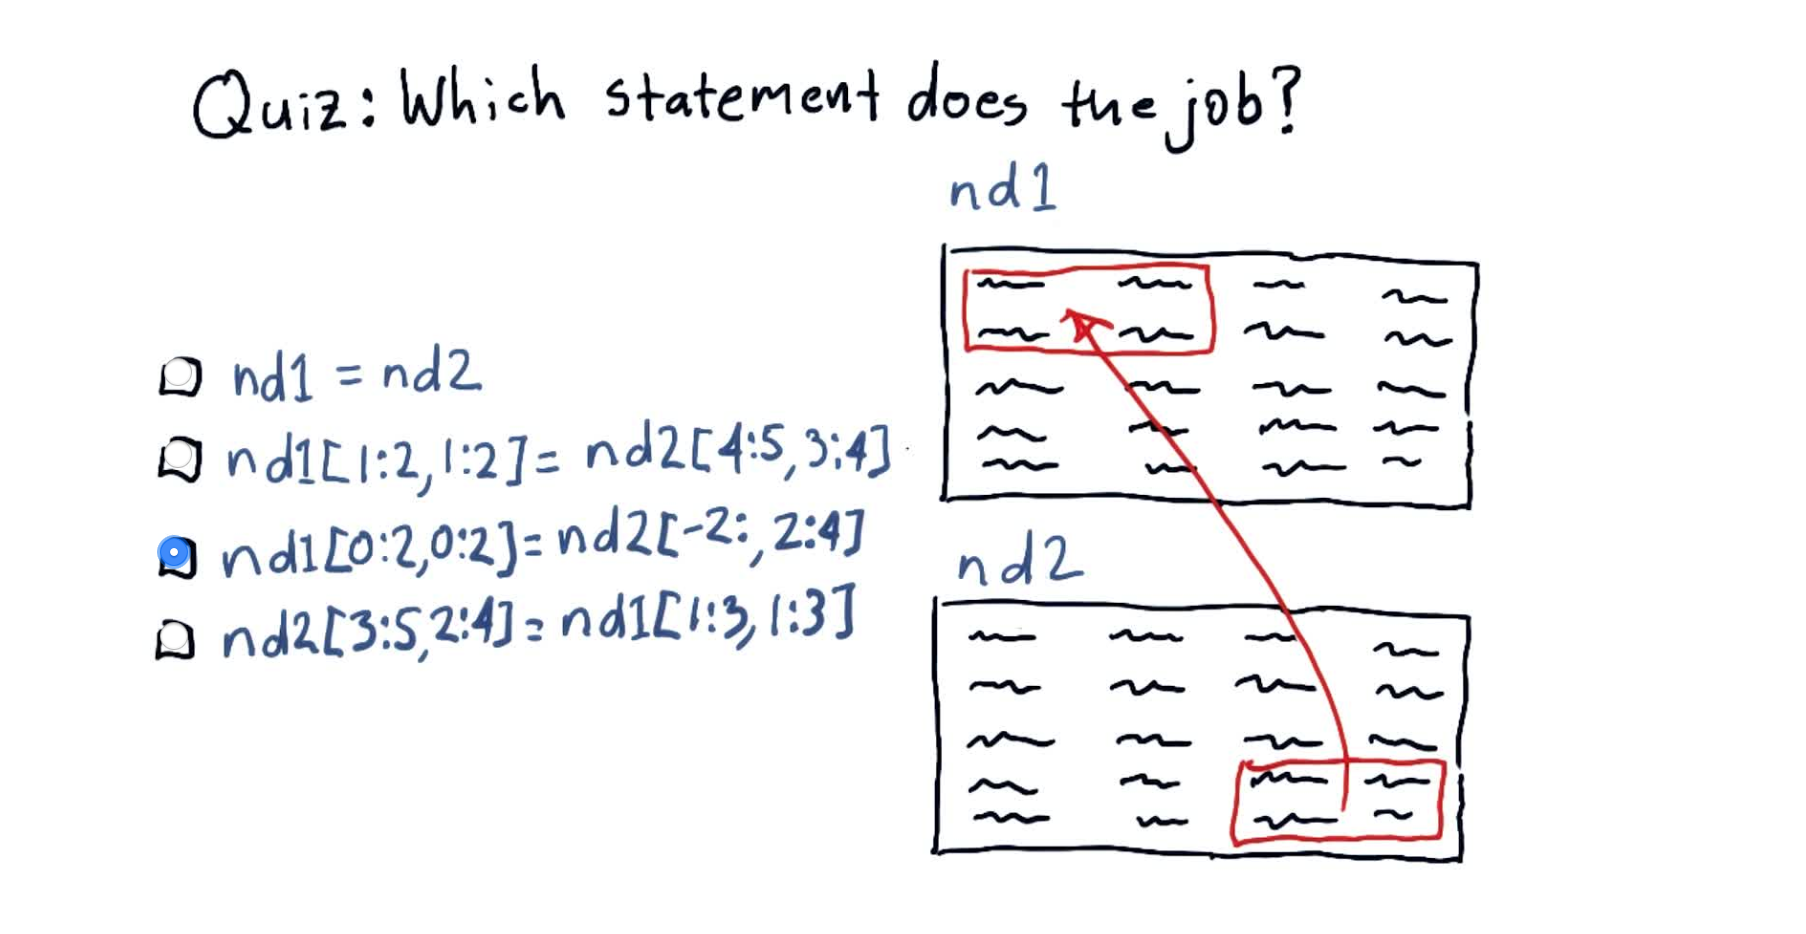 Quiz: Which statement does the job?
nd1
nd1 = nd2
nd1[1:2,1:2]= nd2[4:5,3:4]
nd1[0:2,0:2]= nd2[-2:,2:4]
nd2[3:5,2:4]= nd1[1:3,1:3]
nd2